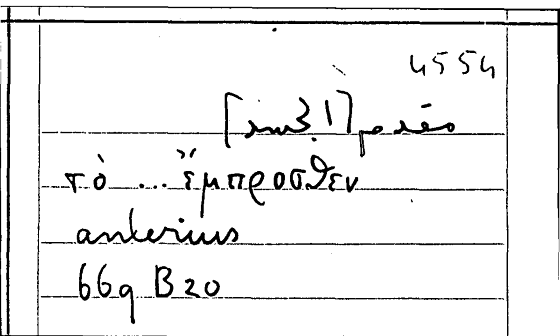 4554
τὸ ... ἔμπροσθεν
anterius
669 B 20